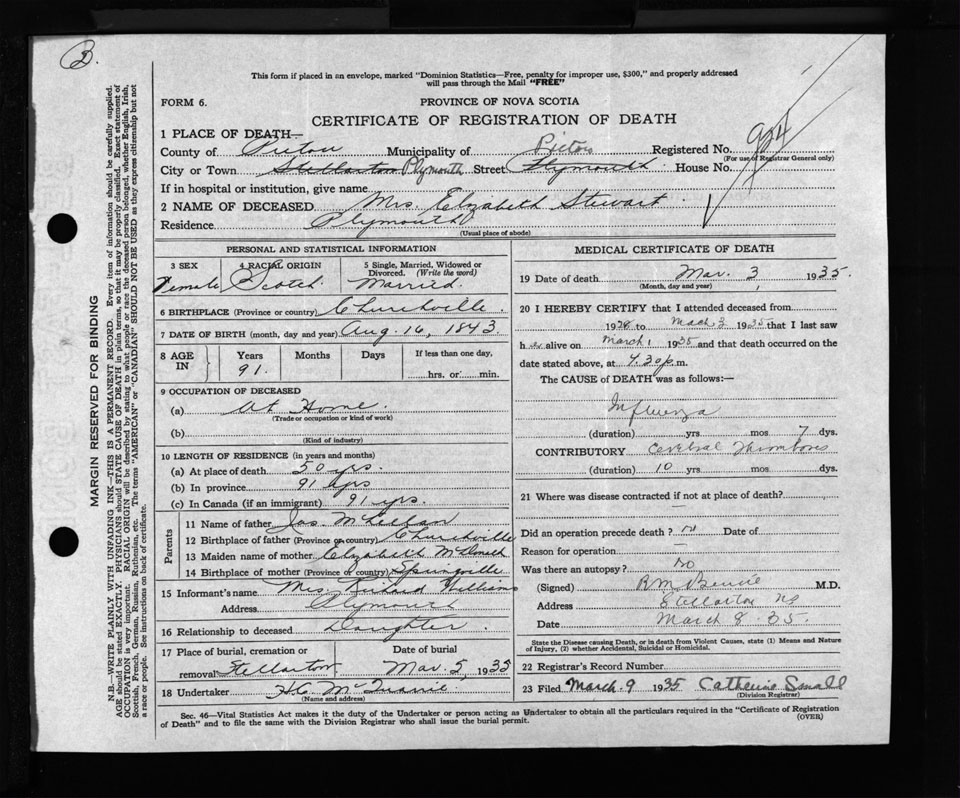 B.
This form if placed in an envelope, marked "Dominion Statistics—Free, penalty for improper use, $300," and properly addressed
will pass through the Mail "FREE"
FORM 6.
PROVINCE OF NOVA SCOTIA
CERTIFICATE OF REGISTRATION OF DEATH
1 PLACE OF DEATH—
County of Pictou Municipality of Pictou Registered No. 924
(For use of Registrar General only)
City or Town Stellarton Plymouth Street Plymouth House No.
If in hospital or institution, give name
2 NAME OF DECEASED Mrs. Elizabeth Stewart
Residence Plymouth
(Usual place of abode)
PERSONAL AND STATISTICAL INFORMATION
3 SEX Female
4 RACIAL ORIGIN Scotch
5 Single, Married, Widowed or
Divorced. (Write the word)
Married
6 BIRTHPLACE (Province or country) Churchville
7 DATE OF BIRTH (month, day and year) Aug. 16, 1843
8 AGE IN Years Months Days If less than one day,
91 hrs. or min.
9 OCCUPATION OF DECEASED
(a) At Home
(Trade or occupation or kind of work)
(b)
(Kind of industry)
10 LENGTH OF RESIDENCE (in years and months)
(a) At place of death 50 yrs.
(b) In province 91 yrs
(c) In Canada (if an immigrant) 91 yrs.
Parents
11 Name of father Jas.
12 Birthplace of father (Province or country) Churchville
13 Maiden name of mother Elizabeth
14 Birthplace of mother (Province or country) Springville
15 Informant's name Mrs. Richard Williams
Address Plymouth
16 Relationship to deceased Daughter
17 Place of burial, cremation or Date of burial
removal Stellarton Mar. 5, 1935
18 Undertaker
(Name and address)
MEDICAL CERTIFICATE OF DEATH
19 Date of death Mar. 3 1935.
(Month, day and year)
20 I HEREBY CERTIFY that I attended deceased from
19 to Mach 3 1935 that I last saw
h alive on March 1 1935 and that death occurred on the
date stated above, at 4.30 p.m.
The CAUSE of DEATH was as follows:—
Influenza
(duration) yrs mos 7 dys.
CONTRIBUTORY Cerebral Thrombosis
(duration) 10 yrs mos dys.
21 Where was disease contracted if not at place of death?
Did an operation precede death? Date of
Reason for operation
Was there an autopsy? no
(Signed) M.D.
Address Stellarton NS
March 8. 35.
State the Disease causing Death, or in death from Violent Causes, state (1) Means and Nature
of Injury, (2) whether Accidental, Suicidal or Homicidal.
22 Registrar's Record Number
23 Filed March 9 1935 Catherine Small
(Division Registrar)
Sec. 46—Vital Statistics Act makes it the duty of the Undertaker or person acting as Undertaker to obtain all the particulars required in the "Certificate of Registration
of Death" and to file the same with the Division Registrar who shall issue the burial permit.
(OVER)
MARGIN RESERVED FOR BINDING
N.B.—WRITE PLAINLY WITH UNFADING INK—THIS IS A PERMANENT RECORD. Every item of information should be carefully supplied.
AGE should be stated EXACTLY. PHYSICIANS should STATE CAUSE OF DEATH in plain terms, so that it may be properly classified. Exact statement of
OCCUPATION is very important. RACIAL ORIGIN will be described by stating to what people or race the deceased person belonged, whether English, Irish,
Scottish, French, German, Russian, Ruthenian, etc. The terms "AMERICAN" or "CANADIAN" SHOULD NOT BE USED as they express citizenship but not
a race or people. See instructions on back of certificate.